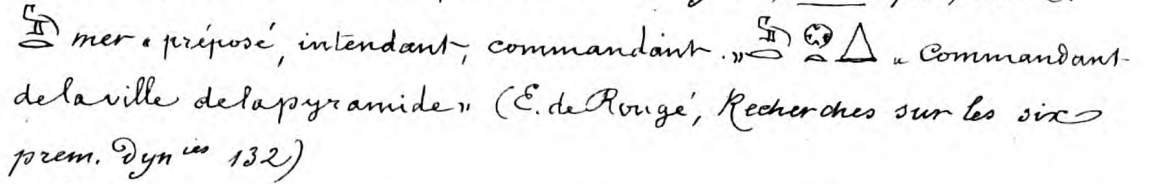 mer « préposé, intendant, commandant. » « Commandant
de la ville de la pyramide » (E. de Rougé, Recherches sur les six
prem. Dyn ies 132)